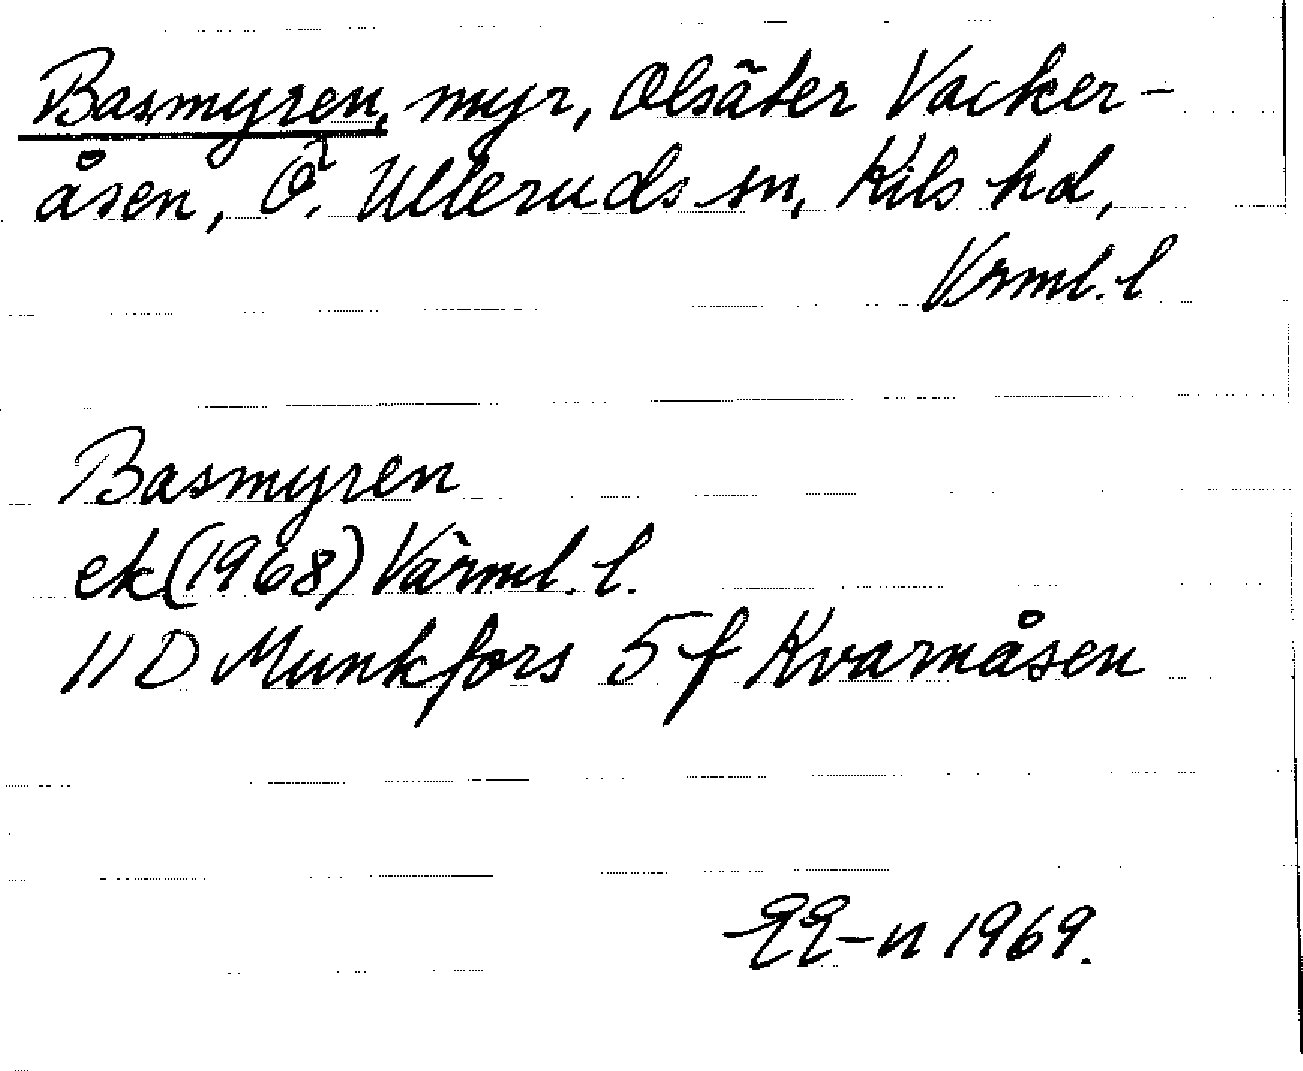 Basmyren, myr, Olsäter Vacker-
åsen, Ö. Ulleruds sn, Kils hd,
Vrml. l
Basmyren
ek (1968) Värml. l.
11 D Munkfors 5 f Kvarnåsen
EE-n 1969.